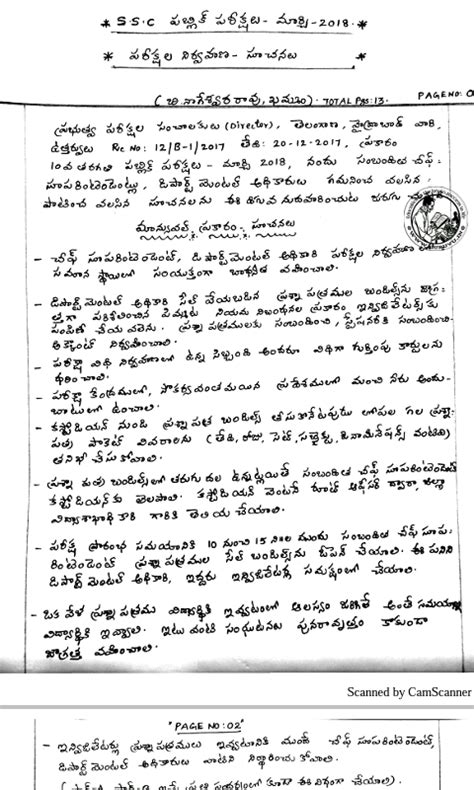 * S.S.C పబ్లిక్ పరీక్షలు - మార్చి - 2018. *
* పరీక్షల నిర్వహణ - సూచనలు *
(బి.నాగేశ్వర రావు, ఖమ్మం). TOTAL PGS:13. PAGE NO: 0
ప్రభుత్వ పరీక్షల సంచాలకులు (Director), తెలంగాణ, హైద్రాబాద్ వారి,
ఉత్తర్వులు Rc No: 12/B-1/2017 తేది: 20-12-2017, ప్రకారం
10వ తరగతి పబ్లిక్ పరీక్షలు - మార్చి 2018, నందు సంబంధిత చీఫ్-
సూపరింటెండెంట్లు, డిపార్ట్ మెంటల్ అధికారులు గమనించ వలసిన,
పాటించ వలసిన సూచనలను ఈ దిగువ నుదహరించుట జరుగు
మాన్యువల్ ప్రకారం - సూచనలు
- చీఫ్ సూపరింటెండెంట్, డిపార్ట్ మెంటల్ అధికారి పరీక్షల నిర్వహణ
సమాన స్థాయిలో సంయుక్తంగా బాధ్యత వహించాలి.
- డిపార్ట్ మెంటల్ అధికారి సీల్ వేయబడిన ప్రశ్నా పత్రముల బండిల్స్‌ను జాగ్ర-
త్తగా పరిశీలించిన పిమ్మట నియమ నిబంధనల ప్రకారం ఇన్విజిలేటర్స్ కు
పంపిణీ చేయ వలెను. ప్రశ్నా పత్రములకు సంబంధించి, స్టేషనరీకి సంబంధించి-
అకౌంట్ నిర్వహించాలి.
- పరీక్షా విధి నిర్వహణలో ఉన్న సిబ్బంది అందరూ విధిగా గుర్తింపు కార్డులను
ధరించాలి.
- పరీక్షా కేంద్రములో, సౌకర్యవంతమయిన ప్రదేశములో మంచి నీరు అందు-
బాటులో ఉంచాలి.
- కస్టోడియన్ నుండి ప్రశ్నాపత్ర బండిల్స్ తీసుకొనేటపుడు లోపల గల ప్రశ్నా-
పత్ర పాకెట్ వివరాలను (తేది, రోజు, సెట్, సబ్జెక్టు, డినామినేషన్స్ వంటివి)
తనిఖీ చేసుకోవాలి.
- ప్రశ్నా పత్ర బండిల్స్‌లో తరుగుదల ఉన్నట్లయితే సంబంధిత చీఫ్ సూపరింటెండెంట్
కస్టోడియన్‌కు తెలపాలి. కస్టోడియన్ వెంటనే రూట్ ఆఫీసర్ ద్వారా, జిల్లా
విద్యాశాఖాధికారి గారికి తెలియ చేయాలి.
- పరీక్ష ప్రారంభ సమయానికి 10 నుంచి 15 నిల ముందు సంబంధిత చీఫ్ సూప-
రింటెండెంట్ ప్రశ్నాపత్రముల సీల్ బండిల్స్‌ను ఓపెన్ చేయాలి. ఈ పనిని
డిపార్ట్ మెంటల్ అధికారి, ఇద్దరు ఇన్విజిలేటర్ల సమక్షంలో చేయాలి.
- ఒక వేళ ప్రశ్నాపత్రము విద్యార్థికి ఇవ్వటంలో ఆలస్యం జరిగితే అంతే సమయాన్ని
విద్యార్థికి ఇవ్వాలి. ఇటువంటి సంఘటనలు పునరావృత్తం కాకుండా
జాగ్రత్త వహించాలి.
Scanned by CamScanner
"PAGE NO: 02"
- ఇన్విజిలేటర్లు ప్రశ్నాపత్రములు ఇవ్వటానికి ముందే చీఫ్ సూపరింటెండెంట్,
డిపార్ట్ మెంటల్ అధికారులు వాటిని నిర్ధారించు కోవాలి.
ఈ విధంగా చేయాలి).